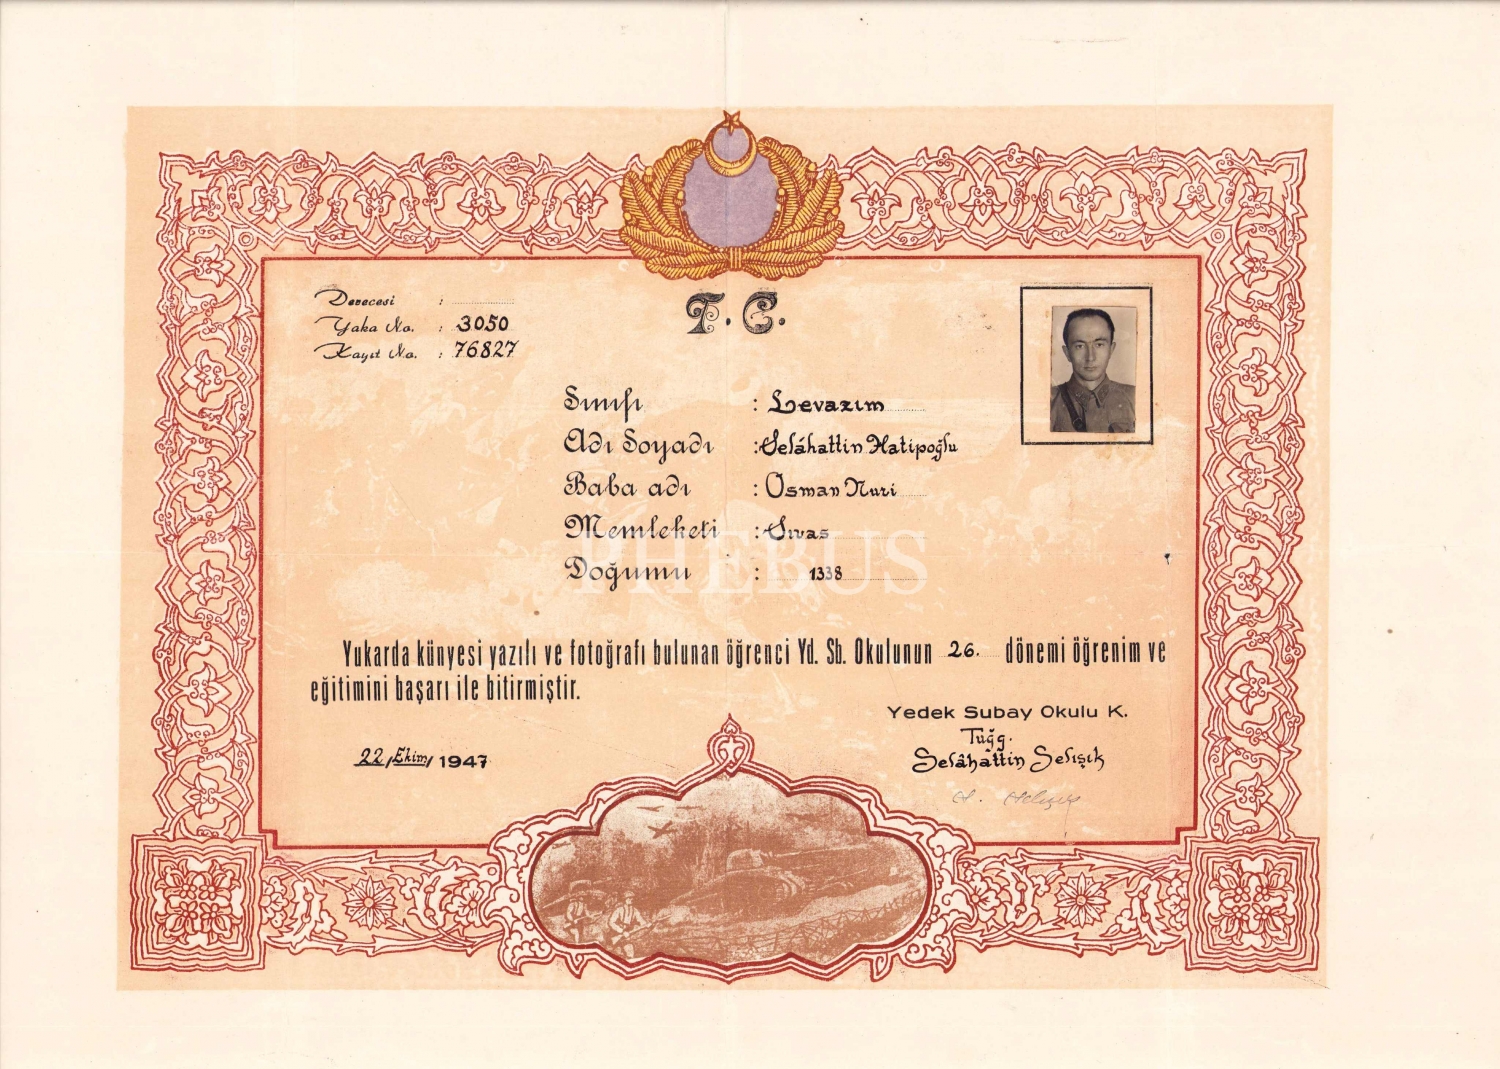 T. C.
Derecesi :
Yaka No. : 3050
Kayıt No. : 76827
Sınıfı : Levazım
Adı Soyadı : Selâhattin Hatipoğlu
Baba adı : Osman Nuri
Memleketi : Sıvas
Doğumu : 1338
PHEBUS
Yukarda künyesi yazılı ve fotoğrafı bulunan öğrenci Yd. Sb. Okulunun 26. dönemi öğrenim ve
eğitimini başarı ile bitirmiştir.
Yedek Subay Okulu K.
Tüğg.
Selâhattin Selışık
22/Ekim/1947